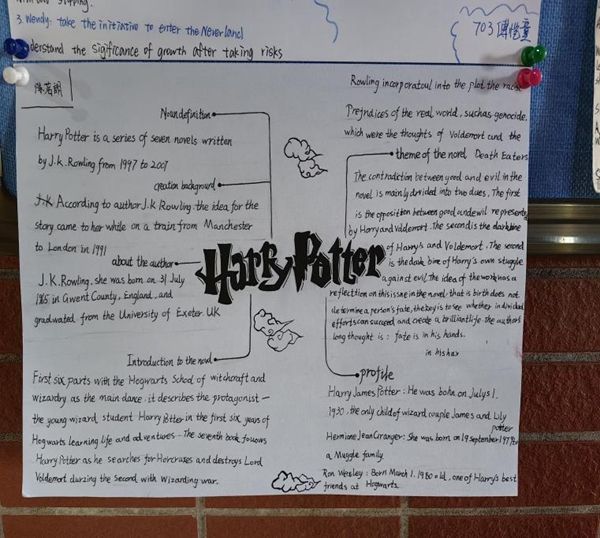 3. Wendy: take the initiative to enter the Neverland
understand the Sigificance of growth after taking risks
703
Noun definition
Harry Potter is a series of seven novels written
by J.K. Rowling from 1997 to 2007
creation background
J.K According to author J.K. Rowling, the idea for the
story came to her while on a train from Manchester
to London in 1991
about the author
J.K. Rowling, she was born on 31 July
1965 in Gwent County, England, and
graduated from the University of Exeter UK
Introduction to the novel
First six parts with the Hogwarts School of witchcraft and
wizardry as the main dance : it describes the protagonist —
the young wizard student Harry Potter in the first six years of
Hogwarts learning life and adventures — The seventh book follows
Harry Potter as he searches for Horcruxes and destroys Lord
Voldemort during the second with wizarding war.
Harry Potter
Rowling incorporatoul into the plot the racist
Prejndices of the real world, such as genocide,
which were the thoughts of Voldemort and the
theme of the novel Death Eaters
The contradiction between good and evil in the
novel is mainly divided into two dues. The first
is the opposition between good and evil represented
by Harry and Voldemort. The second is the dark bine
of Harry's and Voldemort. The second
is the dark bine of Harry's own struggle
against evil. The idea of the work was a
reflection on this issne in the novel. that is birth does not
determine a person's fate, the key is to see whether individual
efforts can succeed and create a brilliant life. the author's
long thought is : fate is in his hands.
in his har
profile
Harry James Potter : He was bohn on Julys 1.
1930, the only child of wizard couple James and Lily
potter
Hermine Jean Granger : She was born on 19 september 1979 for
a Muggle family
Ron Wesley : Born March 1. 1980 old, one of Harry's best
friends at Hogwarts.